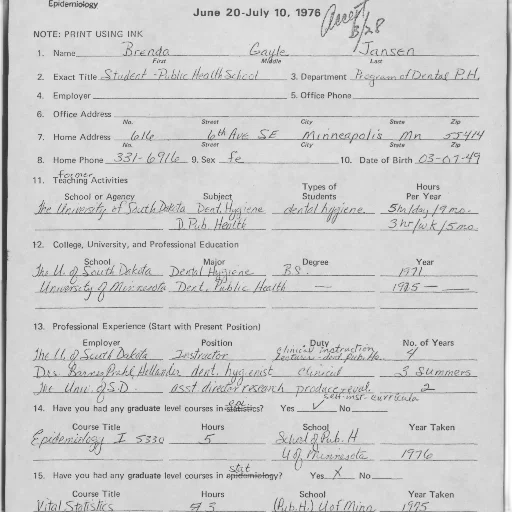 Epidemiology
June 20-July 10, 1976
Accept
NOTE: PRINT USING INK
1. Name Brenda Gayle Jansen
First Middle Last
2. Exact Title Student - Public Health School 3. Department Program of Dental P.H.
4. Employer 5. Office Phone
6. Office Address
No. Street City State Zip
7. Home Address 616 6th Ave SE Minneapolis Mn 55414
No. Street City State Zip
8. Home Phone 331-6916 9. Sex fe 10. Date of Birth 03-07-49
former
11. Teaching Activities
School or Agency Subject Types of Students Hours Per Year
The University of South Dakota Dent. Hygiene dental hygiene 5hr/day/9mo.
D. Pub. Health 3hr/wk/5mo.
12. College, University, and Professional Education
School Major Degree Year
The U. of South Dakota Dental Hygiene B.S. 1971
University of Minnesota Dent. Public Health — 1975 —
13. Professional Experience (Start with Present Position)
Employer Position Duty No. of Years
The U. of South Dakota Instructor clinical instruction lecture-dent. pub. He. 4
Drs. Barnes Prahl, Hellander dent. hygienist clinical 3 summers
The Univ. of S.D. asst director research produce+eval. self-inst. curricula 2
14. Have you had any graduate level courses in statistics? epi. Yes ✓ No
Course Title Hours School Year Taken
Epidemiology I 5330 5 School of Pub. H
U of Minnesota 1976
15. Have you had any graduate level courses in epidemiology? stat Yes X No
Course Title Hours School Year Taken
Vital Statistics 3 (Pub.H.) U of Minn 1975